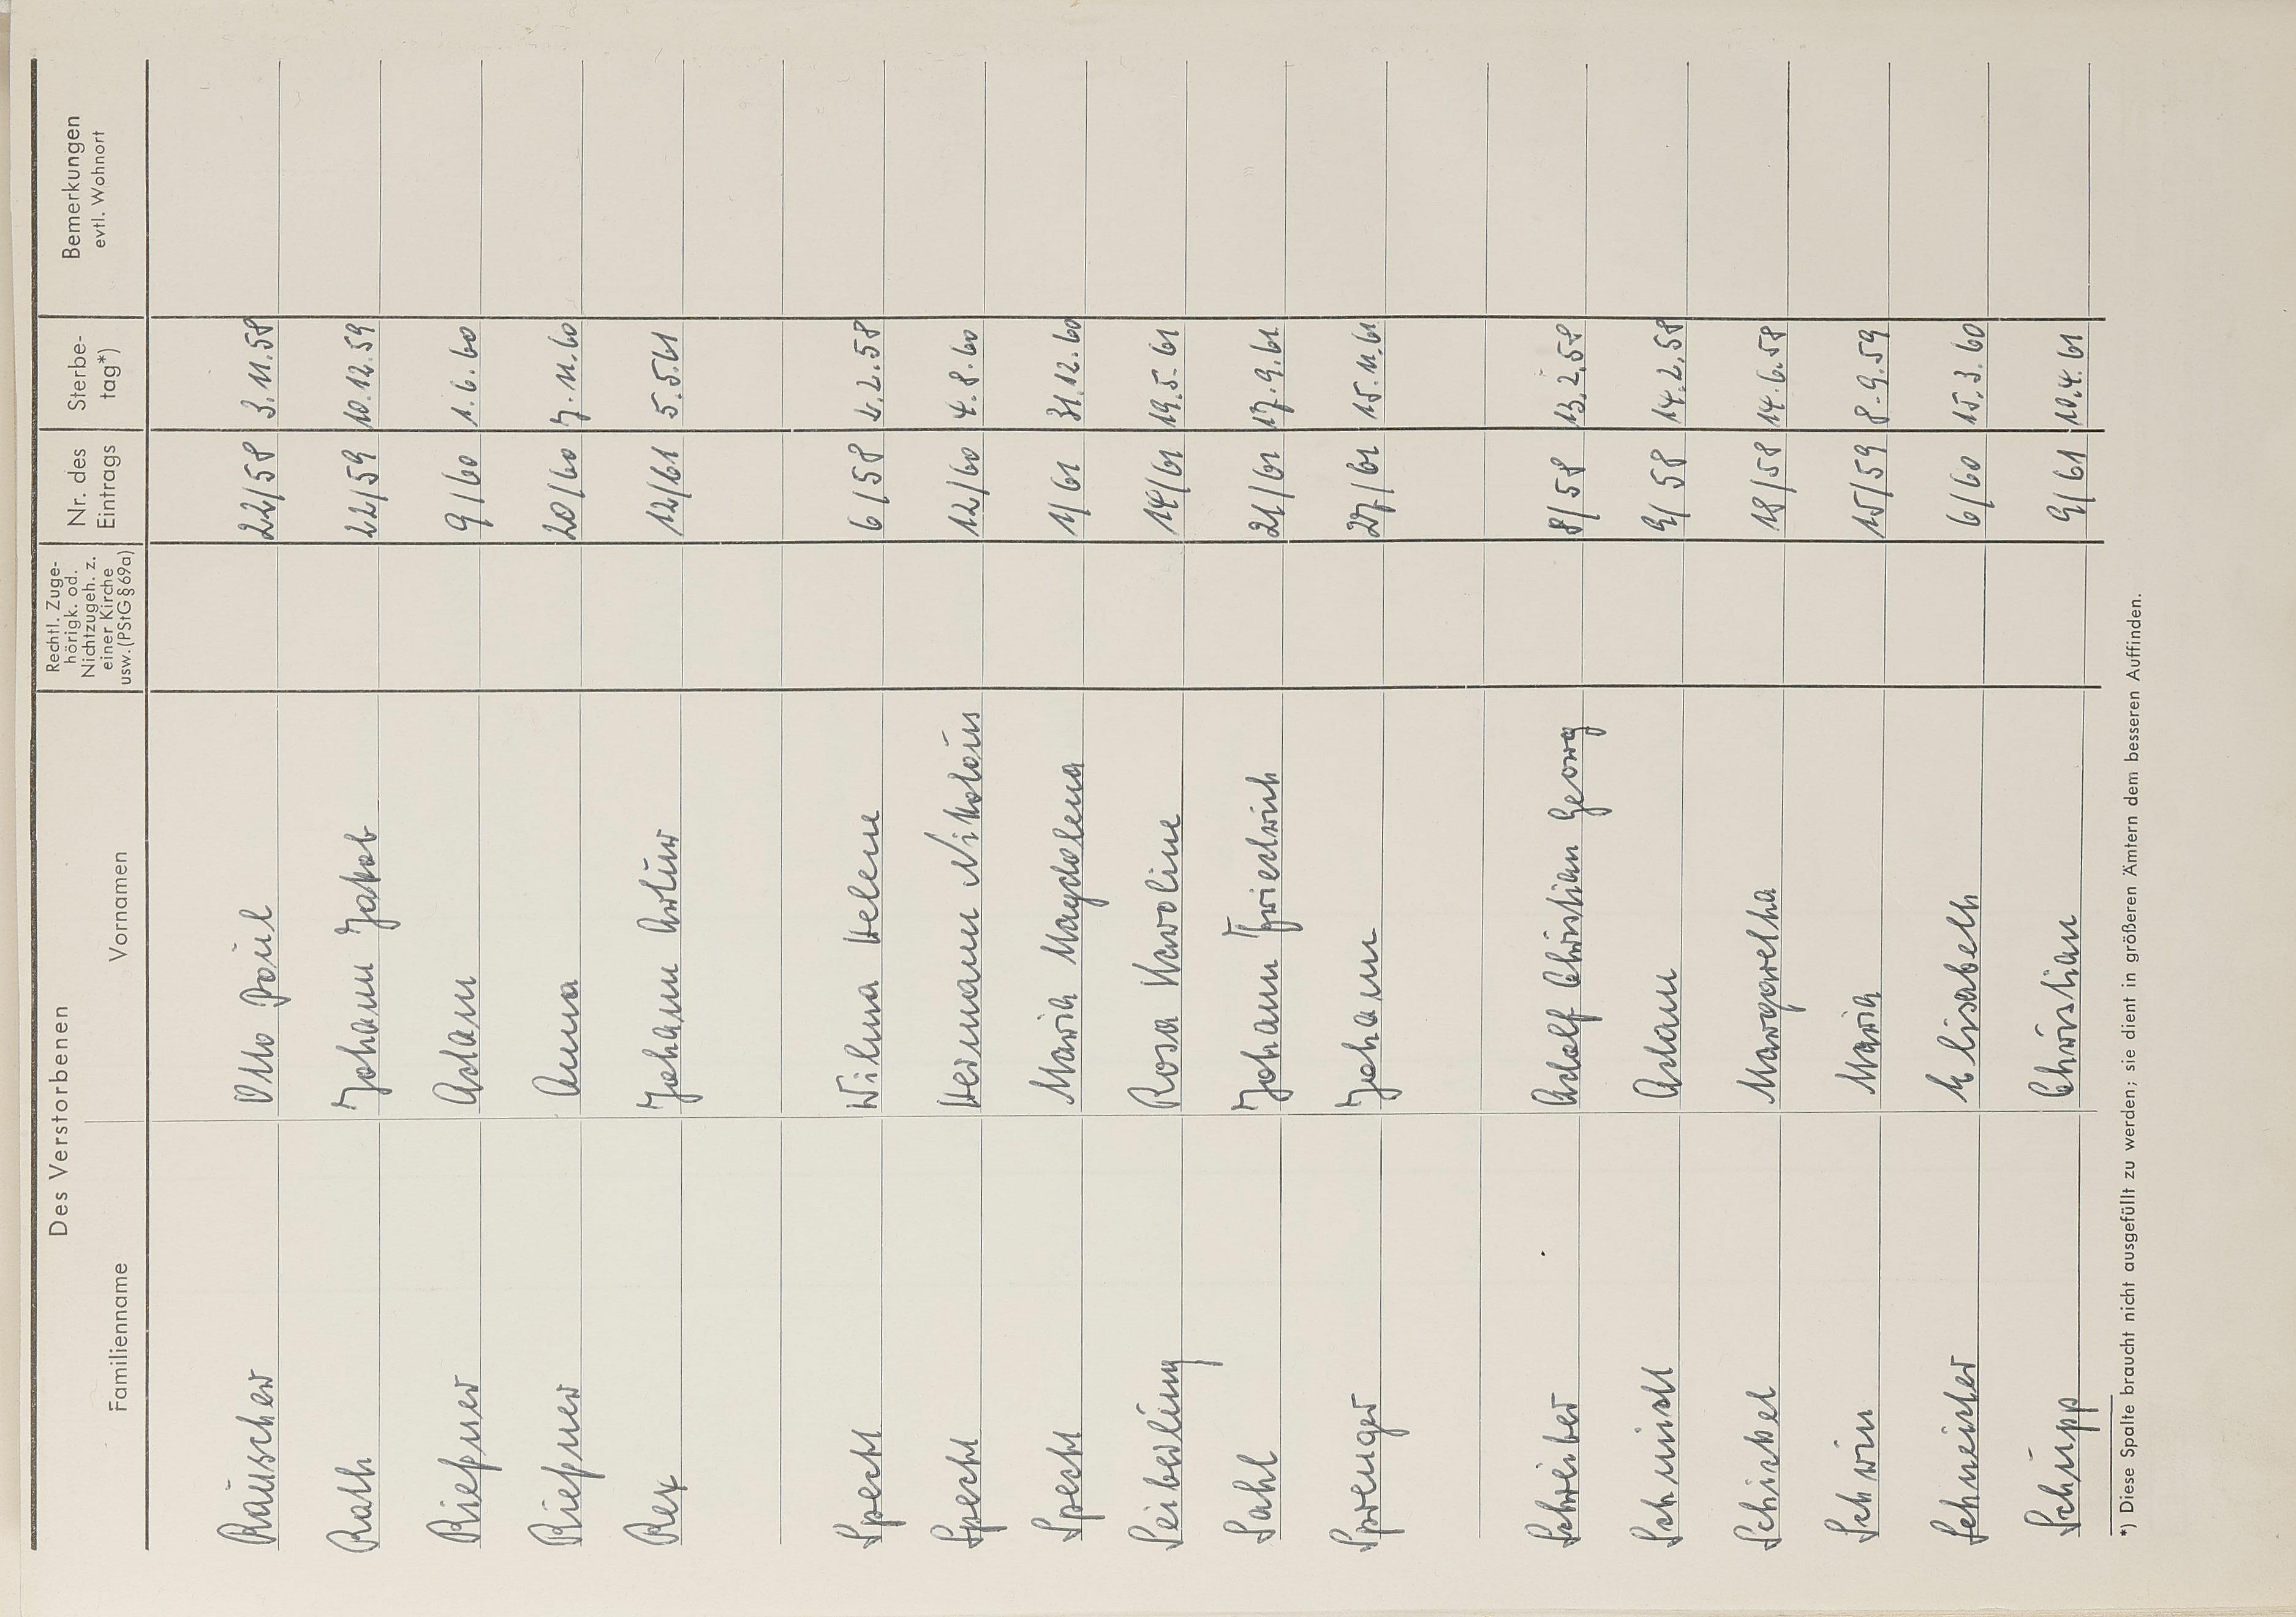 Des Verstorbenen
Familienname Vornamen
Rechtl. Zuge-
hörigk. od.
Nichtzugeh. z.
einer Kirche
usw. (PStG § 69a)
Nr. des
Eintrags
Sterbe-
tag*)
Bemerkungen
evtl. Wohnort
Räuscher Otto Paul 22/58 3.11.58
Rath Johann Jakob 22/59 10.12.59
Adam 9/60 1.6.60
Anna 20/60 7.11.60
Rex Johann Artur 12/61 5.5.61
Specht Wilma Helene 6/58 2.2.58
Specht Hermann Nikolaus 12/60 4.8.60
Specht Maria Magdalena 1/61 31.12.60
Seiberling Rosa Karoline 14/61 19.5.61
Sahl Johann Friedrich 21/61 17.9.61
Sprenger Johann 27/61 15.11.61
Schreiber Adolf Christian Georg 8/58 13.2.58
Schmidt Adam 9/58 14.2.58
Margaretha 18/58 14.6.58
Maria 15/59 8.9.59
Schneider Elisabeth 6/60 15.3.60
Schupp Christian 9/61 10.4.61
*) Diese Spalte braucht nicht ausgefüllt zu werden; sie dient in größeren Ämtern dem besseren Auffinden.